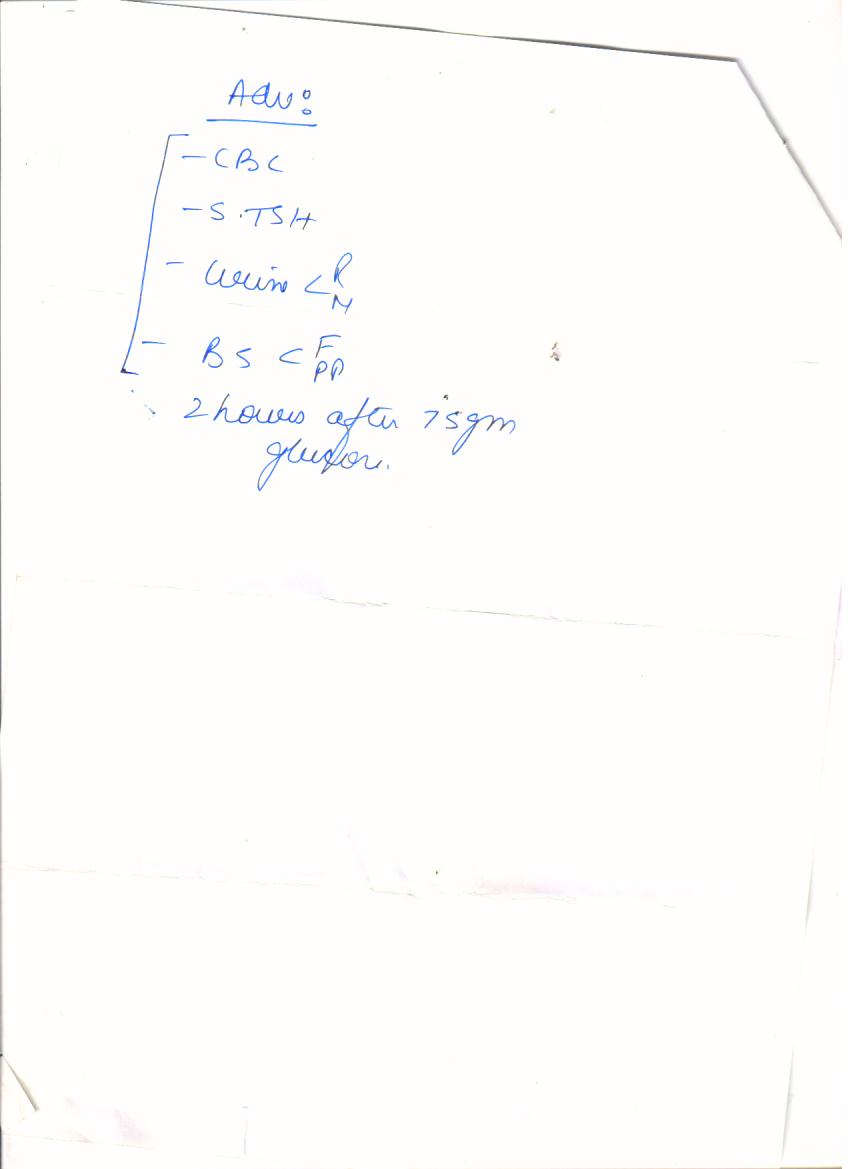 Adv:
- CBC
- S.TSH
- Urine < R
M
- BS < F
PP
2 hours after 75gm
glucose.